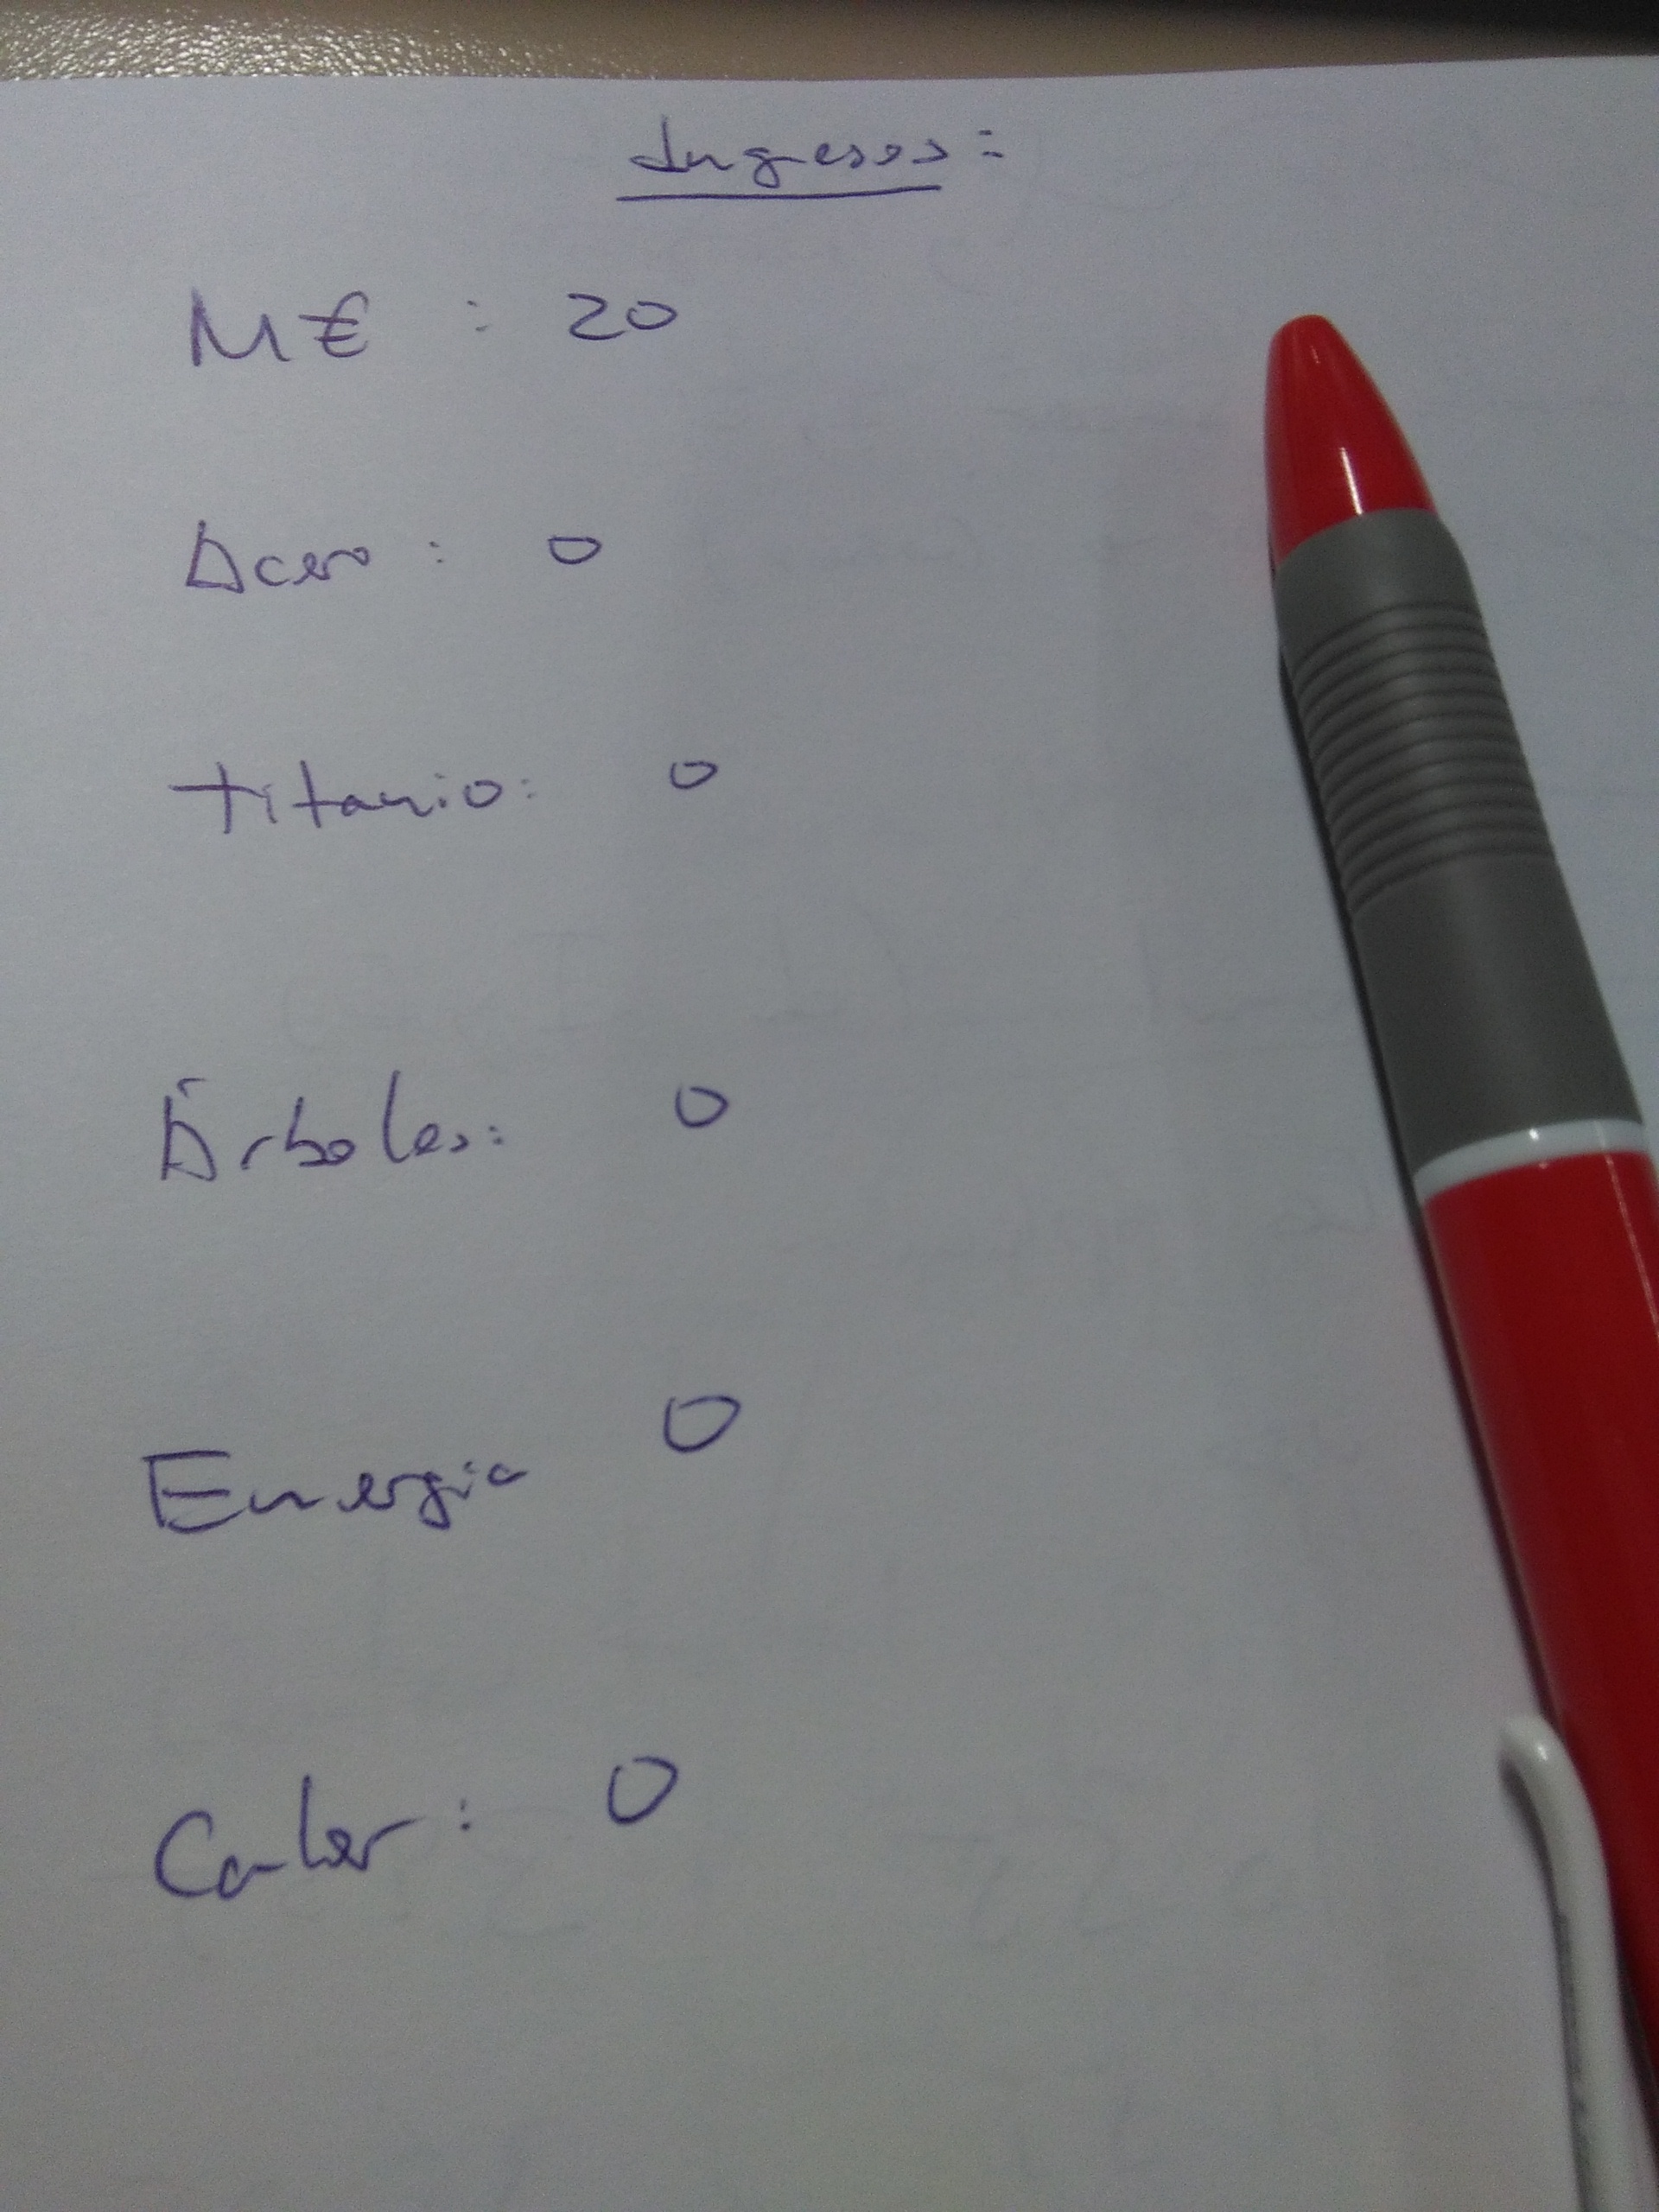 Ingresos:
M€ : 20
Acero : 0
Titanio: 0
Árboles: 0
Energia 0
Calor : 0